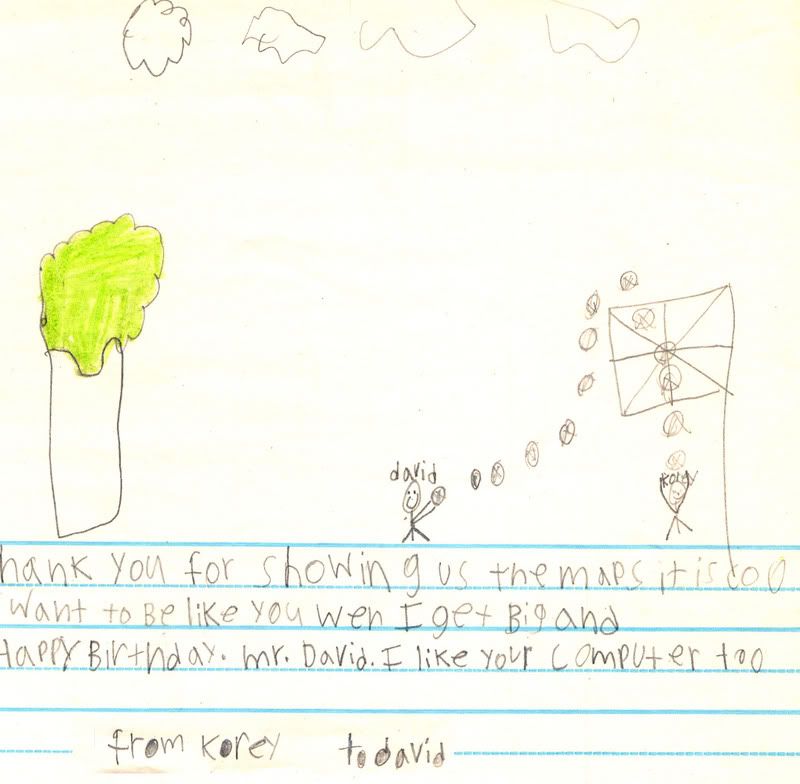 david
korey
hank you for showing us the maps it is cool
want to Be like you wen I get Big and
Happy Birthday. mr. David. I like your computer too
from korey to david